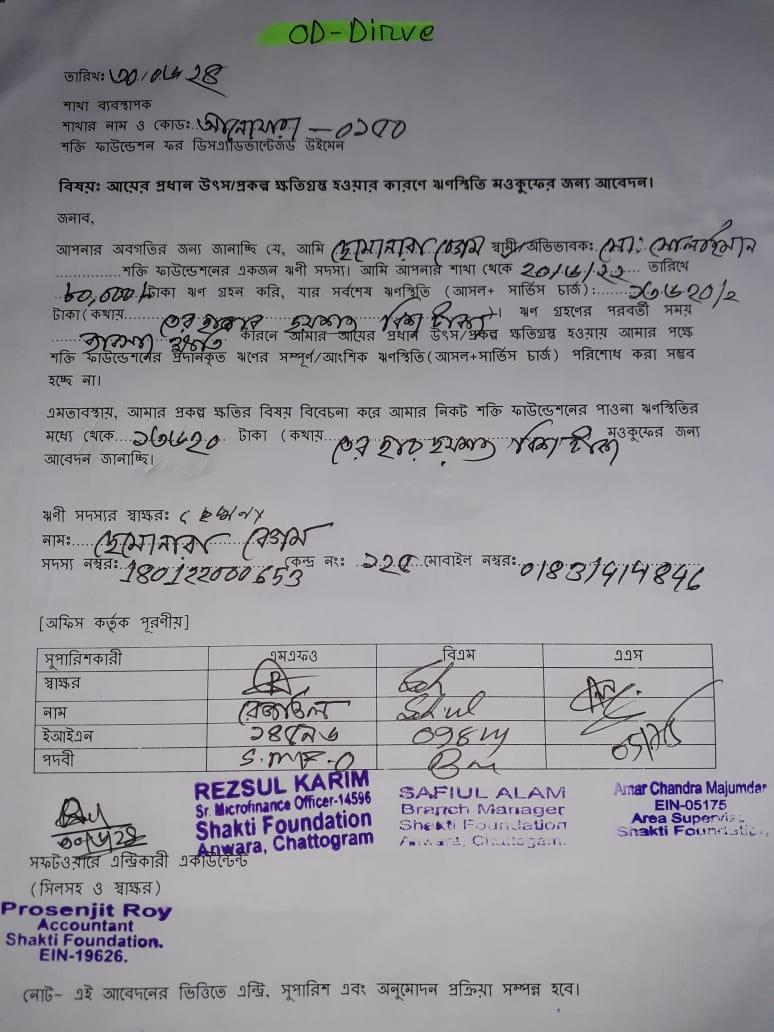 OD-Dirve
তারিখঃ
শাখা ব্যবস্থাপক
শাখার নাম ও কোডঃ আনোয়ারা - ০১৫০
শক্তি ফাউন্ডেশন ফর ডিসএ্যাডভান্টেজড উইমেন
বিষয়ঃ আয়ের প্রধান উৎস/প্রকল্প ক্ষতিগ্রস্থ হওয়ার কারণে ঋণস্থিতি মওকুফের জন্য আবেদন।
জনাব,
আপনার অবগতির জন্য জানাচ্ছি যে, আমি বেগম স্বামী/অভিভাবকঃ মোঃ
শক্তি ফাউন্ডেশনের একজন ঋণী সদস্য। আমি আপনার শাখা থেকে তারিখে
৮০,০০০/ টাকা ঋণ গ্রহন করি, যার সর্বশেষ ঋণস্থিতি (আসল+ সার্ভিস চার্জ)ঃ ১৩৬২০/২
টাকা (কথায় তের হাজার ছয়শত বিশ টাকা)। ঋণ গ্রহণের পরবর্তী সময়
কারনে আমার আয়ের প্রধান উৎস/প্রকল্প ক্ষতিগ্রস্থ হওয়ায় আমার পক্ষে
শক্তি ফাউন্ডেশনের প্রদানকৃত ঋণের সম্পূর্ণ/আংশিক ঋণস্থিতি (আসল+সার্ভিস চার্জ) পরিশোধ করা সম্ভব
হচ্ছে না।
এমতাবস্থায়, আমার প্রকল্প ক্ষতির বিষয় বিবেচনা করে আমার নিকট শক্তি ফাউন্ডেশনের পাওনা ঋণস্থিতির
মধ্যে থেকে ১৩৬২০ টাকা (কথায় তের হাজার ছয়শত বিশ টাকা মওকুফের জন্য
আবেদন জানাচ্ছি।
ঋণী সদস্যর স্বাক্ষরঃ
নামঃ বেগম
সদস্য নম্বরঃ 180122000653 কেন্দ্র নংঃ ১২৫ মোবাইল নম্বরঃ 01831414846
[অফিস কর্তৃক পূরণীয়]
সুপারিশকারী এমএফও বিএম এএস
স্বাক্ষর
নাম রেজাউল
ইআইএন ১৪৫৯৬
পদবী S.MF-O Bm
REZSUL KARIM
Sr. Microfinance Officer-14596
Shakti Foundation
Anwara, Chattogram
SAFIUL ALAM
Branch Manager
Shakti Foundation
Anwara, Chattogam.
Amar Chandra Majumdar
EIN-05175
Area Supervisor
Shakti Foundation
সফটওয়্যারে এন্ট্রিকারী একাউন্টেন্ট
(সিলসহ ও স্বাক্ষর)
Prosenjit Roy
Accountant
Shakti Foundation.
EIN-19626.
নোট- এই আবেদনের ভিত্তিতে এন্ট্রি, সুপারিশ এবং অনুমোদন প্রক্রিয়া সম্পন্ন হবে।